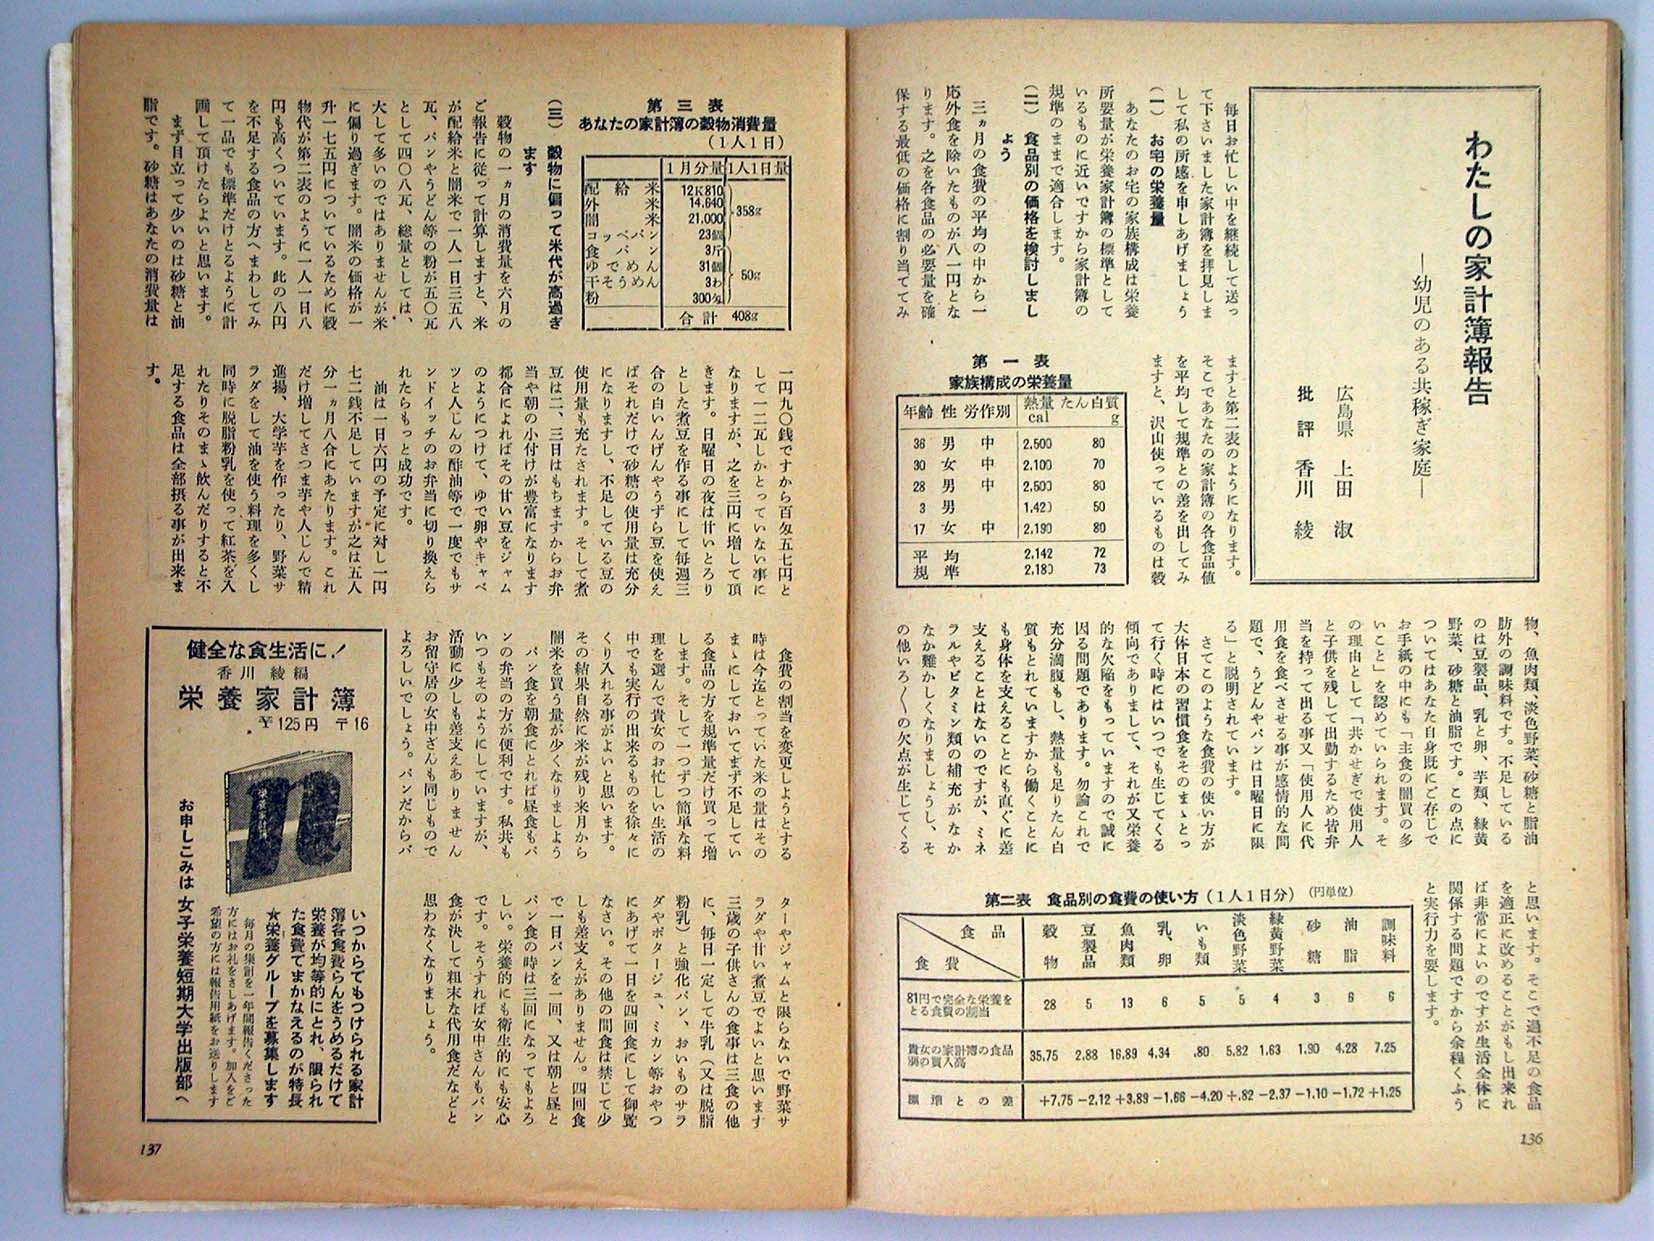 わたしの家計簿報告
―幼児のある共稼ぎ家庭―
広島県 上田 淑
批評 香川 綾
毎日お忙しい中を継続して送っ
て下さいました家計簿を拝見しま
して私の所感を申しあげましょう
(一) お宅の栄養量
あなたのお宅の家族構成は栄養
所要量が栄養家計簿の標準として
いるものに近いですから家計簿の
規準のままで適合します。
(二) 食品別の価格を検討しまし
ょう
三ヵ月の食費の平均の中から一
応外食を除いたものが八一円とな
ります。之を各食品の必要量を確
保する最低の価格に割り当ててみ
ますと第二表のようになります。
そこであなたの家計簿の各食品値
を平均して規準との差を出してみ
ますと、沢山使っているものは穀
第一表
家族構成の栄養量
年齢 性 労作別 熱量 cal たん白質 g
36 男 中 2,500 80
30 女 中 2,100 70
28 男 中 2,500 80
3 男 1,420 50
17 女 中 2,190 80
平均 2,142 72
規準 2,180 73
物、魚肉類、淡色野菜、砂糖と脂油
肪外の調味料です。不足している
のは豆製品、乳と卵、芋類、緑黄
野菜、砂糖と油脂です。この点に
ついてはあなた自身既にご存じで
お手紙の中にも「主食の闇買の多
いこと」を認めていられます。そ
の理由として「共かせぎで使用人
と子供を残して出勤するため皆弁
当を持って出る事又「使用人に代
用食を食べさせる事が感情的な問
題で、うどんやパンは日曜日に限
る」と説明されています。
さてこのような食費の使い方が
大体日本の習慣食をそのまゝとっ
て行く時にはいつでも生じてくる
傾向でありまして、それが又栄養
的な欠陥をもっていますので誠に
因る問題であります。勿論これで
充分満腹もし、熱量も足りたん白
質もとれていますから働くことに
も身体を支えることにも直ぐに差
支えることはないのですが、ミネ
ラルやビタミン類の補充がなか
なか難かしくなりましょうし、そ
の他いろ〱の欠点が生じてくる
と思います。そこで過不足の食品
を適正に改めることがもし出来れ
ば非常によいのですが生活全体に
関係する問題ですから余程くふう
と実行力を要します。
第二表 食品別の食費の使い方(1人1日分) (円単位)
食品 食費 穀物 豆製品 魚肉類 乳、卵 いも類 淡色野菜 緑黄野菜 砂糖 油脂 調味料
81円で完全な栄養をとる食費の割当 28 5 13 6 5 5 4 3 6 6
貴女の家計簿の食品別の買入高 35.75 2.88 16.89 4.34 .80 5.82 1.63 1.90 4.28 7.25
との差 +7.75 −2.12 +3.89 −1.66 −4.20 +.82 −2.37 −1.10 −1.72 +1.25
136
第三表
あなたの家計簿の穀物消費量
(1人1日)
1月分量 1人1日量
配給米 12K810
外米 14,640
闇米 21,000
358g
コッペパン 23個
食パン 3斤
ゆでめん 31個
干そうめん 3わ
粉 300匁
50g
合計 408g
(三) 穀物に偏って米代が高過ぎ
ます
穀物の一ヵ月の消費量を六月の
ご報告に従って計算しますと、米
が配給米と闇米で一人一日三五八
瓦、パンやうどん等の粉が五〇瓦
として四〇八瓦、総量としては、
大して多いのではありませんが米
に偏り過ぎます。闇米の価格が一
升一七五円についているために穀
物代が第二表のように一人一日八
円も高くついています。此の八円
を不足する食品の方へまわしてみ
て一品でも標準だけとるように計
画して頂けたらよいと思います。
まず目立って少いのは砂糖と油
脂です。砂糖はあなたの消費量は
一円九〇銭ですから百匁五七円と
して一二瓦しかとっていない事に
なりますが、之を三円に増して頂
きます。日曜日の夜は甘いとろり
とした煮豆を作る事にして毎週三
合の白いんげんやうずら豆を使え
ばそれだけで砂糖の使用量は充分
になりますし、不足している豆の
使用量も充たされます。そして煮
豆は二、三日はもちますからお弁
当や朝の小付けが豊富になります
都合によればその甘い豆をジャム
のようにつけて、ゆで卵やキャベ
ツと人じんの酢油等で一度でもサ
ンドイッチのお弁当に切り換えら
れたらもっと成功です。
油は一日六円の予定に対し一円
七二銭不足していますが之は五人
分一ヵ月八合にあたります。これ
だけ増してさつま芋や人じんで精
進揚、大学芋を作ったり、野菜サ
ラダをして油を使う料理を多くし
同時に脱脂粉乳を使って紅茶を入
れたりそのまゝ飲んだりすると不
足する食品は全部摂る事が出来ま
す。
食費の割当を変更しようとする
時は今迄とっていた米の量はその
まゝにしておいてまず不足してい
る食品の方を規準量だけ買って増
します。そして一つずつ簡単な料
理を選んで貴女のお忙しい生活の
中でも実行の出来るものを徐々に
くり入れる事がよいと思います。
その結果自然に米が残り来月から
闇米を買う量が少くなりましよう
パン食を朝食にとれば昼食もパ
ンの弁当の方が便利です。私共も
いつもそのようにしていますが、
活動に少しも差支えありません
お留守居の女中さんも同じもので
よろしいでしょう。パンだからバ
ターやジャムと限らないで野菜サ
ラダや甘い煮豆でよいと思います
三歳の子供さんの食事は三食の他
に、毎日一定して牛乳(又は脱脂
粉乳)と強化パン、おいものサラ
ダやポタージュ、ミカン等おやつ
にあげて一日を四回食にして御覧
なさい。その他の間食は禁じて少
しも差支えがありません。四回食
で一日パンを一回、又は朝と昼と
パン食の時は三回になってもよろ
しい。栄養的にも衛生的にも安心
です。そうすれば女中さんもパン
食が決して粗末な代用食だなどと
思わなくなりましょう。
健全な食生活に!
香川 綾編
栄養家計簿
¥125円 〒16
栄養家計簿
いつからでもつけられる家計
簿各食費らんをうめるだけで
栄養が均等的にとれ、限られ
た食費でまかなえるのが特長
☆栄養グループを募集します
毎月の集計を一年間報告くださった
方にはお礼をさしあげます。加入をご
希望の方には報告用紙をお送りします
お申しこみは 女子栄養短期大学出版部へ
137